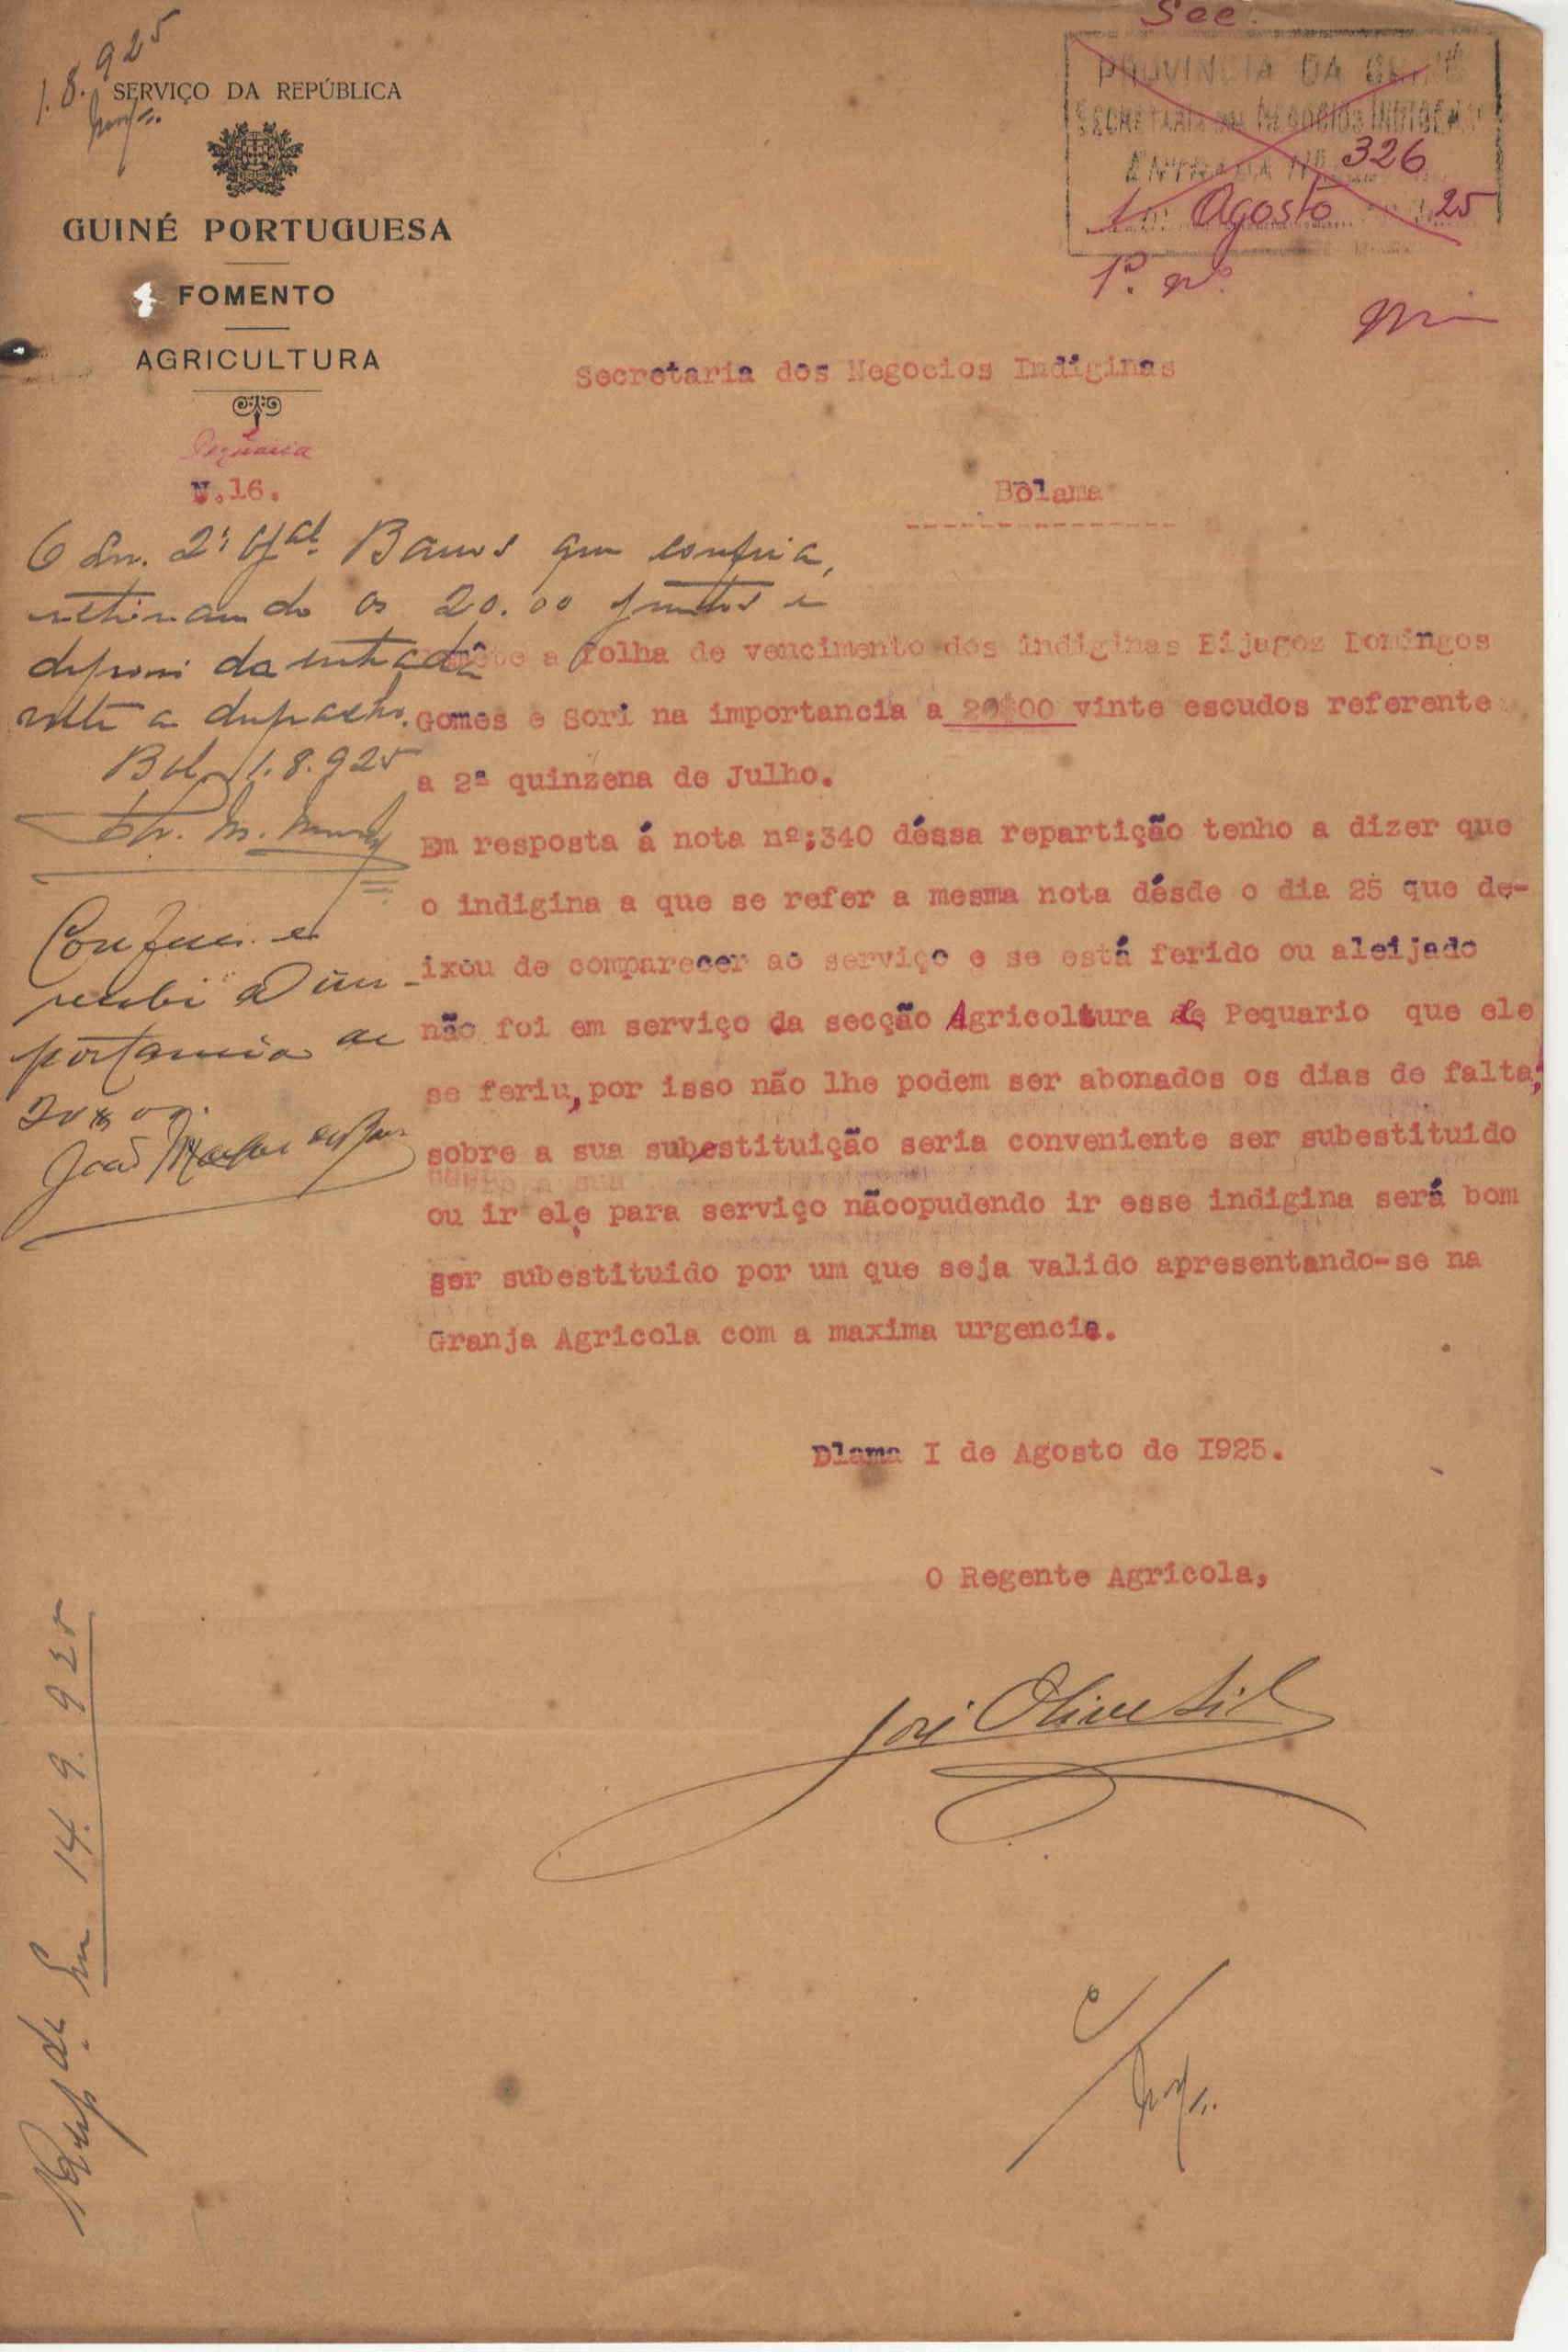 1.8.925
SERVIÇO DA REPÚBLICA
GUINÉ PORTUGUESA
FOMENTO
AGRICULTURA
Pequaria
N.16.
Sec.
PROVINCIA DA GUINÉ
SECRETARIA DOS NEGOCIOS INDIGENAS
ENTRADA Nº 326
1 Agosto 25
Secretaria dos Negocios Indiginas
Bolama
O Snr. 2º Of.al que confira,
retirando os 20.00 juntos e
depois da entrada
volte a despacho.
Bol. 1.8.925
Conferi e
recebi a im-
portancia de
20$00.
João
a folha de vencimento dos indiginas Bijagoz Domingos
Gomes e Sori na importancia a 20$00 vinte escudos referente
a 2ª quinzena de Julho.
Em resposta á nota nº;340 déssa repartição tenho a dizer que
o indigina a que se refer a mesma nota désde o dia 25 que de-
ixou de comparecer ao serviço e se está ferido ou aleijado
não foi em serviço da secção Agricoltura e Pequario que ele
se feriu, por isso não lhe podem ser abonados os dias de falta;
sobre a sua subestituição seria conveniente ser subestituido
ou ir ele para serviço nãoopudendo ir esse indigina será bom
ser subestituido por um que seja valido apresentando-se na
Granja Agricola com a maxima urgencia.
Dlama I de Agosto de I925.
O Regente Agricola,
José
Resp. de em 14.9.925